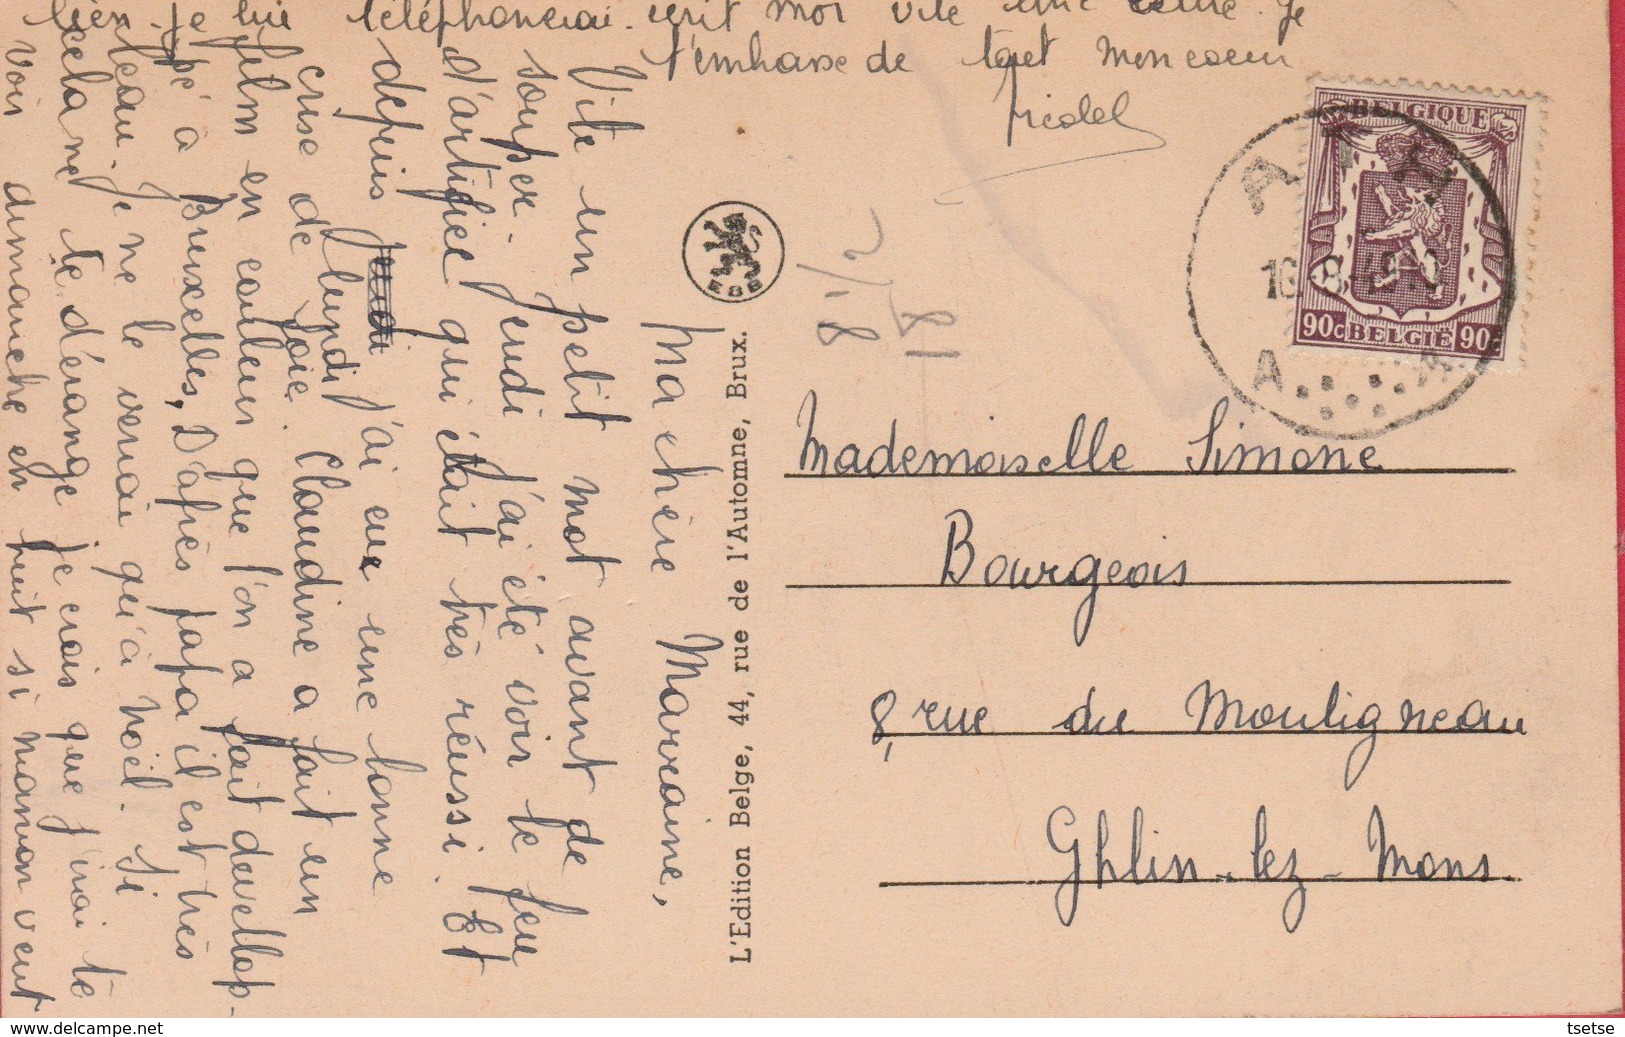 Ma chère Marraine,
Vite un petit mot avant de
souper. Jeudi j'ai été voir le feu
d'artifice qui était très réussi. Et
depuis lundi j'ai eu une bonne
crise de foie. Claudine a fait un
film en couleur que l'on a fait devellop-
pé à Bruxelles, D'après papa il est très
beau. Je ne le verrai qu'à Noël. Si
cela ne te dérange je crois que j'irai te
voir dimanche en huit si maman veut
bien. Je lui téléphonerai. ecrit moi vite une lettre. Je
t'embrasse de tout mon coeur
L'Edition Belge, 44, rue de l'Automne, Brux.
EDB
8 1/2
18
BELGIQUE
90c BELGIE 90c
A A
16 8
A A
Mademoiselle Simone
Bourgeois
8, rue du Mouligneau
Ghlin-lez-Mons.
© delcampe.net
tsetse